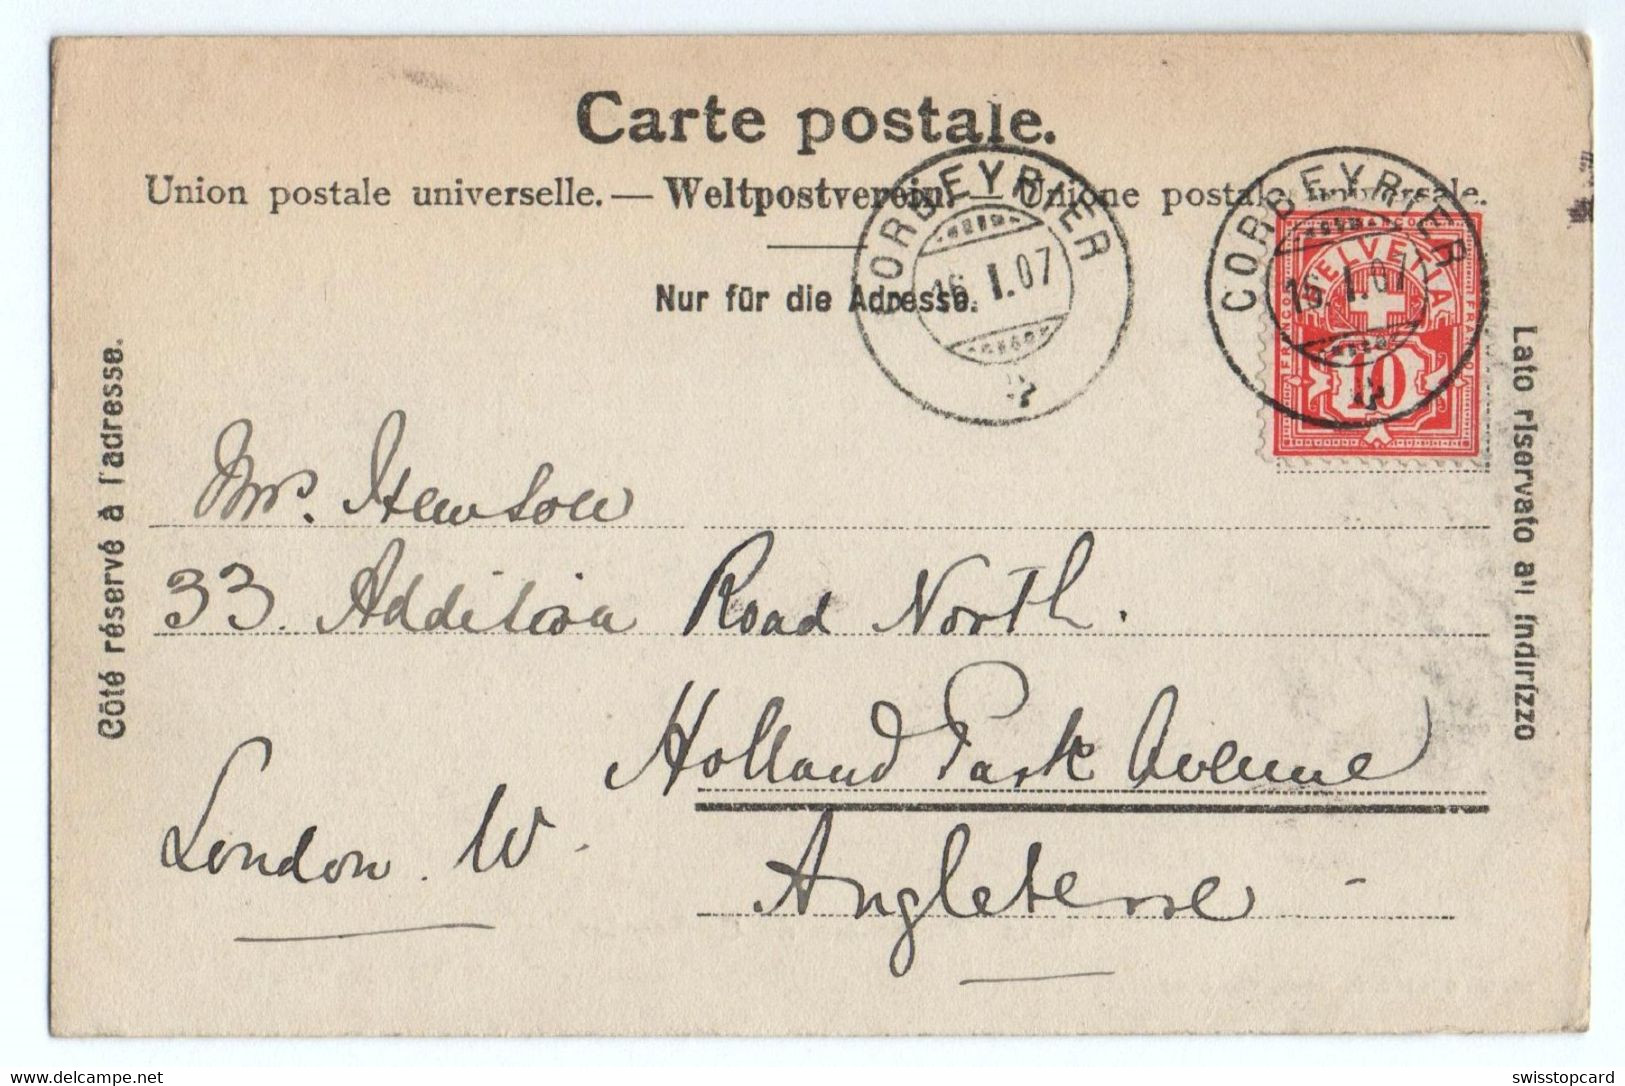 Carte postale.
Union postale universelle. — Weltpostverein. — Unione postale universale.
Nur für die Adresse.
CORBEYRIER
16. I. 07
CORBEYRIER
16. I. 07
HELVETIA
FRANCO
10
Côté réservé à l'adresse.
Lato riservato all indirizzo
Mrs. Hewson
33. Addison Road North.
Holland Park Avenue
London. W.
Angleterre -
www.delcampe.net
swisstopcard